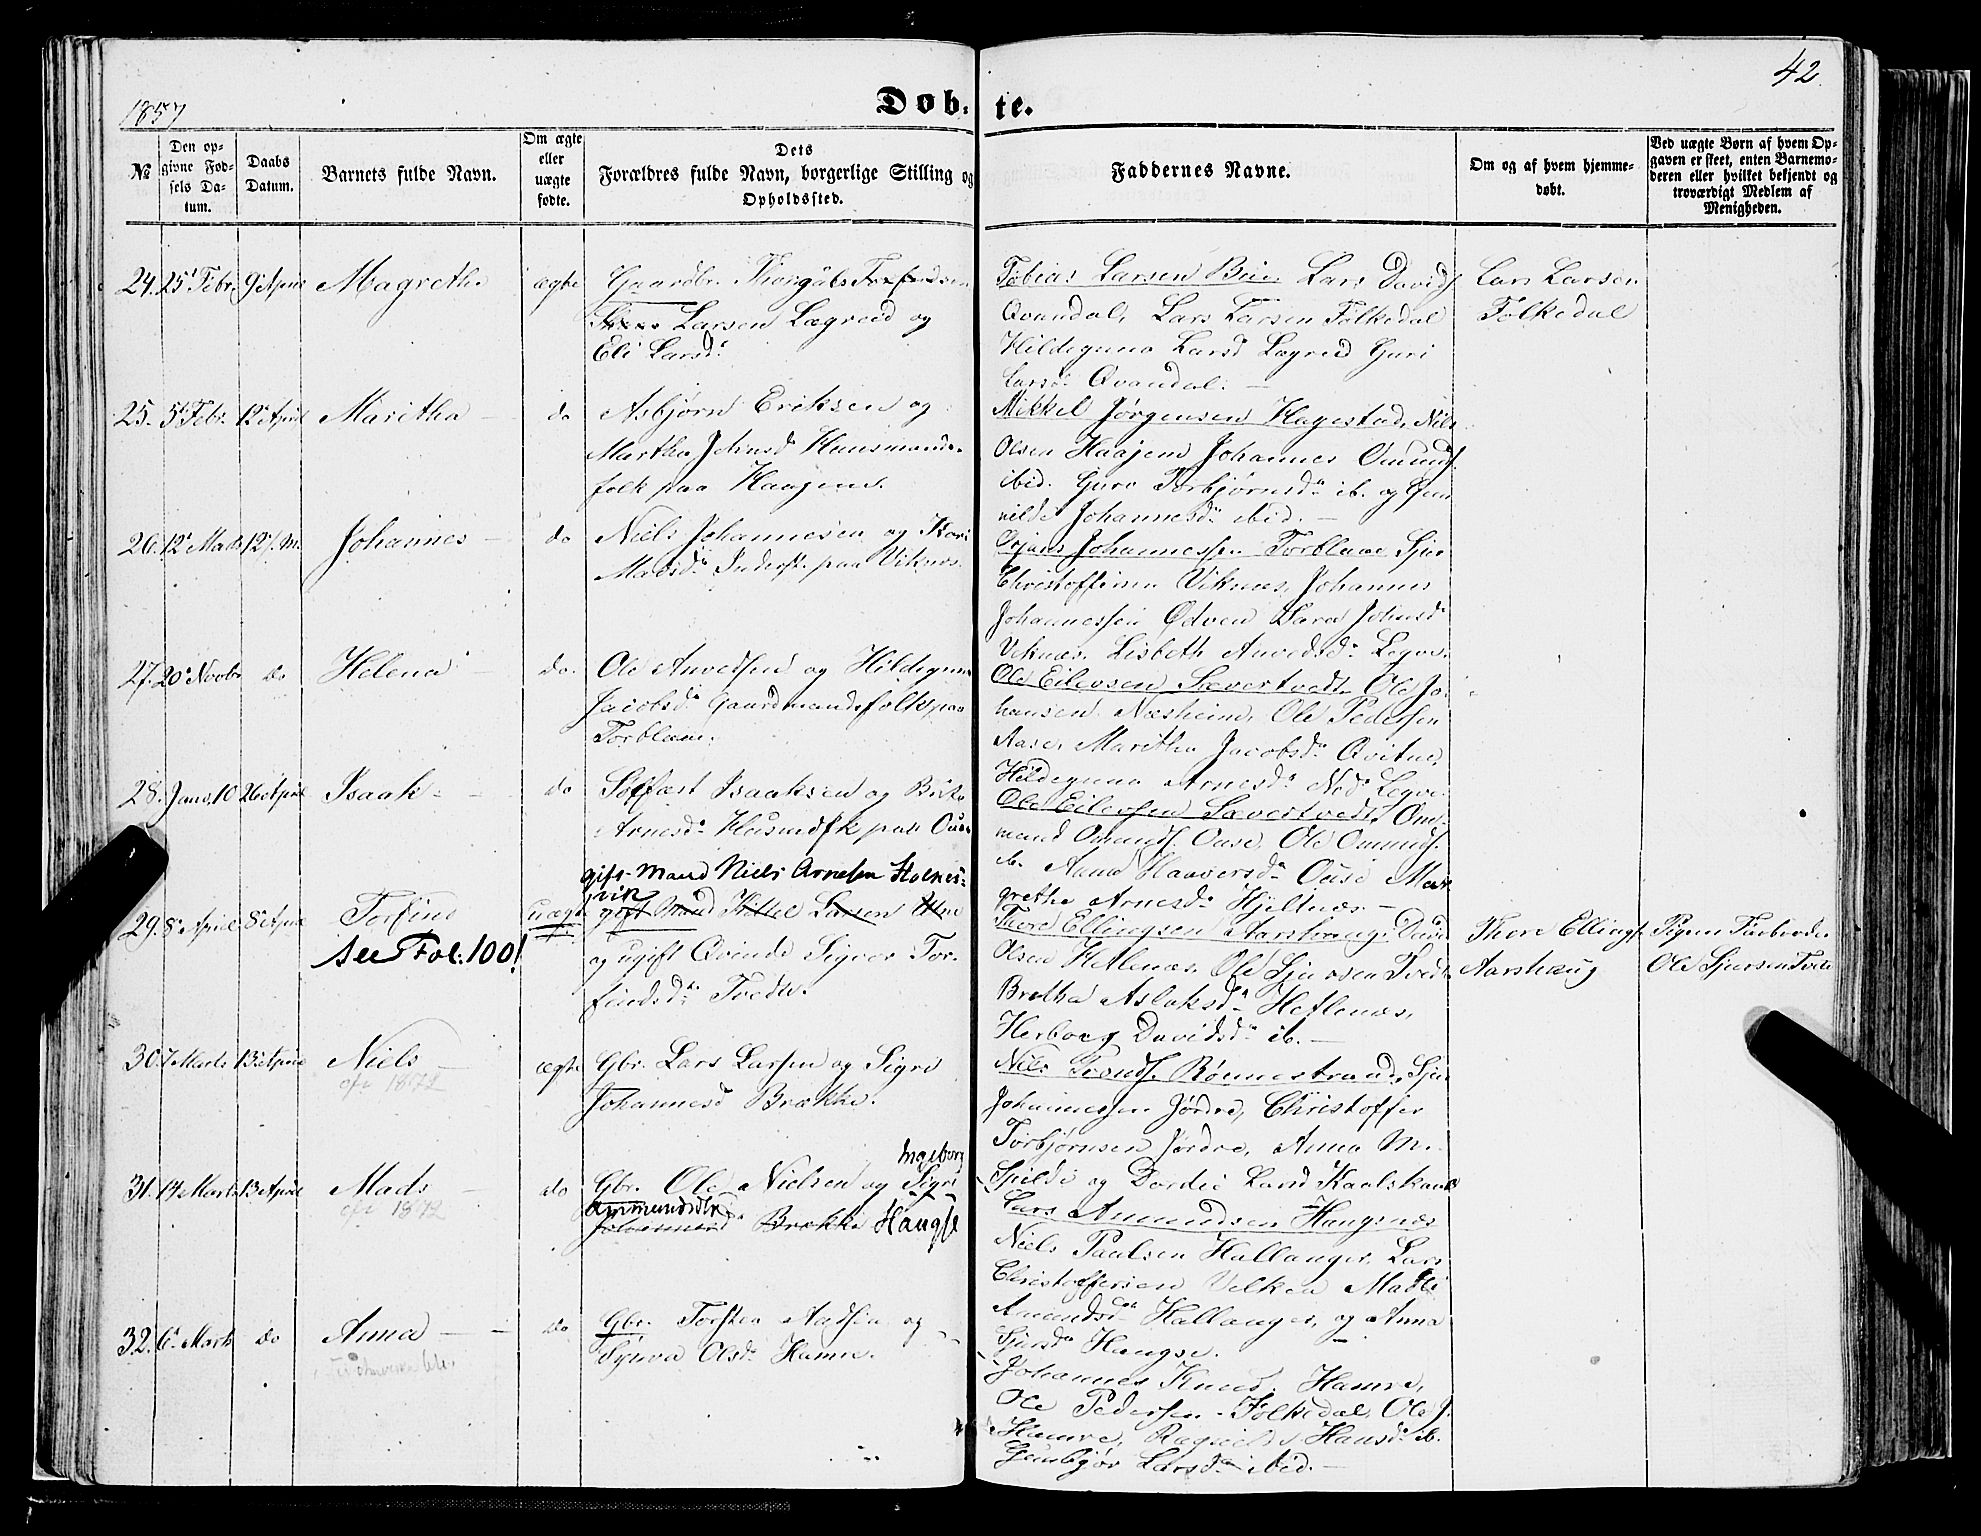 1857
Døb-
te.
42
№
Den op-
givne Fød-
sels Da-
tum.
Daabs
Datum.
Barnets fulde Navn.
Om ægte
eller
uægte
fødte.
Dets
Forældres fulde Navn, borgerlige Stilling og
Opholdssted.
Faddernes Navne.
Om og af hvem hjemme-
døbt.
Ved uægte Børn af hvem Op-
gaven er skeet, enten Barnemo-
deren eller hvilket bekjendt og
troværdigt Medlem af
Menigheden.
24. 25 Febr. 9 April Magrethe ægte
Gaardbr.
Larsen Lægreid og
Eli Larsd.
Tobias Larsen Bue Lars Davids.
Qvandal, Lars Larsen Folkedal
Hildeguna Larsd Lægreid Guri
Larsd. Qvandal. —
Lars Larsen
Folkedal
25. 5 Febr. 12 April Maritha — do
Asbjørn Eriksen og
Martha Johnsd. Huusmands-
folk paa Haajem.
Mikkel Jørgensen Hagestad, Niels
Olsen Haajem Johannes Omunds.
ibid. Guro Torbjørnsd. ib. og Gun-
nilde Johannesd. ibid. —
26. 12 Marts 12 s. M. Johannes — do
Niels Johannesen og Kari
Madsd. Inderst. paa Viknæs.
Johannessen Torblaae, Sjur
Christoffersen Viknæs, Johannes
Johannessen Ødven Johnsd.
Viknæs, Lisbeth Anvedsd. Legve.
27. 20 Novbr. do Helena — do.
Ole Anvedsen og Hildeguna
Jacobsd. Gaardmandsfolk paa
Torblaae.
Ole Eilevsen Sævertvedt. Ole Jo-
hansen Næsheim, Ole Pedersen
Aase, Maritha Jacobsd. Qvitne,
Hildeguna Arnesd. Ned. Legve.
28. Janv. 10 26 April Isaak — do
Solfæst Isaaksen og Brita
Arnesd. Husmdsfk paa Ouse
Ole Eilevsen Sævertvedt, Om-
mund Omunds. Ouse, Ole Omunds.
ib. Anna Haaversd. Ouse Mar-
grethe Arnesd. Hjeltnæs. —
29. 8 April 8 April Torfind uægte
See Fol. 100!
gift Mand Niels Arnesen Holnes-
vik
gift Mand Kittel Larsen Utne
og ugift Qvinde Sigvor Tor-
findsd. Tvedte.
Thore Ellingsen Aarshaug, David
Olsen Hetlenæs, Ole Sjursen Tvedt
Bretha Aslaksd. Hetlenæs,
Herborg Davidsd. ib. —
Thore Ellings.
Aarshaug
Pigens Farbroder
Ole Sjursen Tvete
30. 7 Marts 13 April Niels ægte
cfr 1872
Gbr. Lars Larsen og Sigri
Johannesd Brække.
Nils Tronds. Rønnestrand, Sjur
Johannessen Jørdre, Christoffer
Torbjørnsen Jørdre, Anna M.
Spilde og Dordei Kaalskaas
31. 14 Marts 13 April Mads — do
cfr 1872
Ingeborg
Gbr. Ole Nielsen og Sigri
Ammundsdtr
Johannesd Brække Haugse
Lars Amundsen Haugsnæs
Niels Paulsen Hallanger, Lars
Christoffersen Velken Madli
Amundsd. Hallanger, og Anna
Sjursd. Haugse.
32. 6 Marts do Anna — do
Gbr. Torsten Aadsen og
Synva Olsd. Hamre.
Johannes Knuds. Hamre,
Ole Pedersen Folkedal, Ole J.
Hamre, Ragnilde Hansd. ib.
Gunbjør Larsd. ibid. —